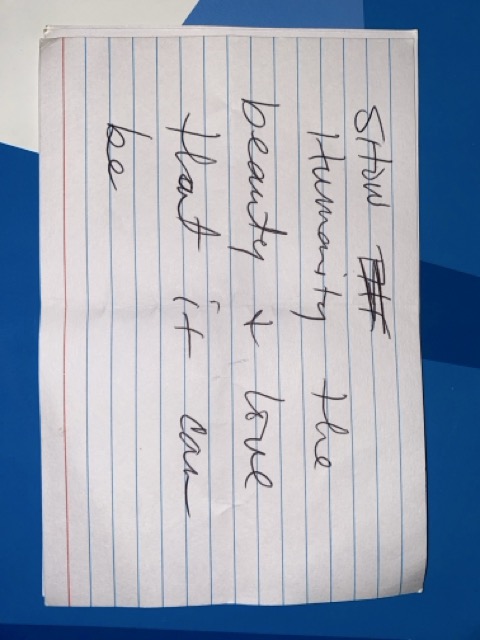 SHOW
Humanity the
beauty + love
that it can
be